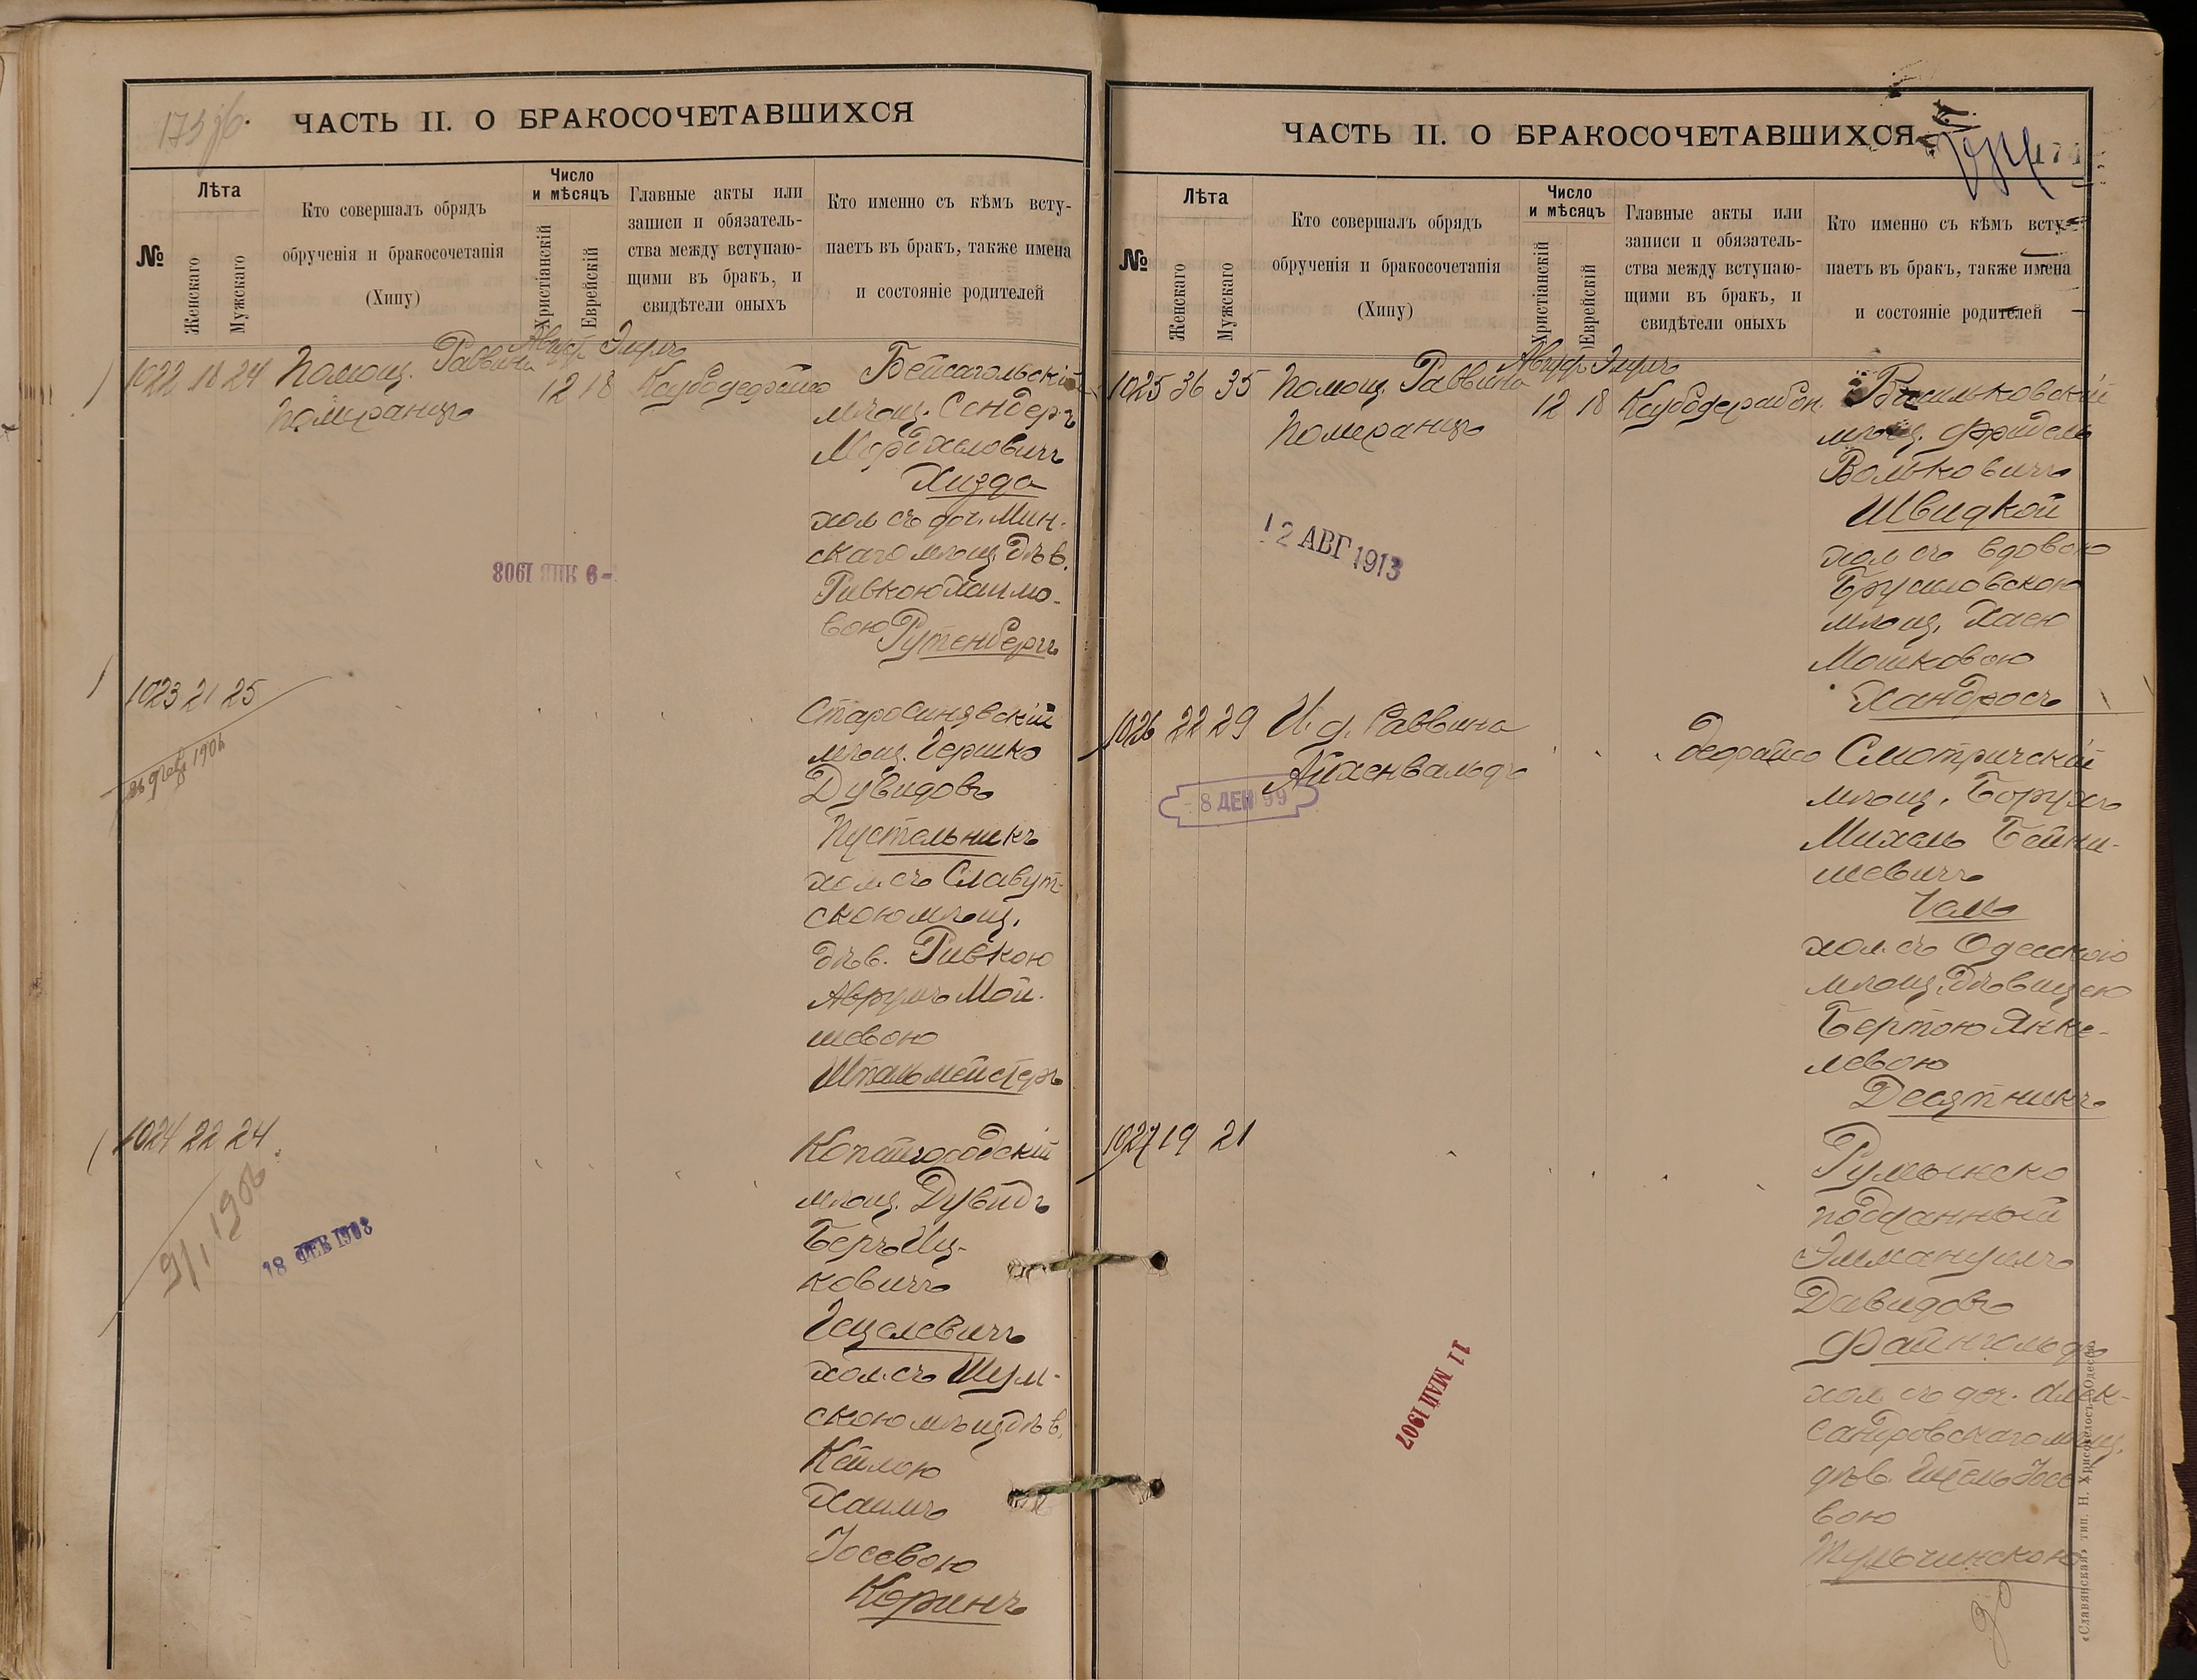 173 об.
ЧАСТЬ II. О БРАКОСОЧЕТАВШИХСЯ
№
Лѣта
Женскаго
Мужскаго
Кто совершалъ обрядъ
обрученія и бракосочетанія
(Хипу)
Число
и мѣсяцъ
Христіанскій
Еврейскій
Главные акты или
записи и обязатель-
ства между вступаю-
щими въ бракъ, и
свидѣтели оныхъ
Кто именно съ кѣмъ всту-
паетъ въ бракъ, также имена
и состояніе родителей
1022 18 24 Помощ. Раввина
Померанцъ
Август Элулъ
12 18
Бейсагольскій
мѣщ. Сендеръ
Мордхеловичъ
Хизда
хол. съ доч. Мин-
скаго мѣщ. дѣв.
Ривкою Хаимо-
вою Рутенбергъ
- 9 ЯНВ 1908
1023 21 25
Старосинявскій
мѣщ. Гершко
Дувидовъ
Пустельникъ
хол. съ Славут-
скою мѣщ.
дѣв. Ривкою
Аврумъ Мой-
шевою
Штальмейстеръ
1024 22 24
9/I 1906
18 ФЕВ 1908
Копайгородскій
мѣщ. Дувидъ
Беръ Иц-
ковичъ
Гецелевичъ
хол. съ Шум-
скою мѣщ. дѣв.
Кейлою
Хаимъ
Іосевою
Коринъ
ЧАСТЬ II. О БРАКОСОЧЕТАВШИХСЯ
174
№
Лѣта
Женскаго
Мужскаго
Кто совершалъ обрядъ
обрученія и бракосочетанія
(Хипу)
Число
и мѣсяцъ
Христіанскій
Еврейскій
Главные акты или
записи и обязатель-
ства между вступаю-
щими въ бракъ, и
свидѣтели оныхъ
Кто именно съ кѣмъ всту-
паетъ въ бракъ, также имена
и состояніе родителей
1025 36 35 Помощ. Раввина
Померанцъ
Август Элулъ
12 18
Васильковскій
мѣщ. Фридель
Вольковичъ
Швидкой
хол. съ вдовою
Брусиловскою
мѣщ. Хаею
Мошковою
Хандросъ
12 АВГ 1913
1026 22 29 И. д. Раввина
Айхенвальдъ
- 8 ДЕК 99
Смотричскій
мѣщ. Борухъ
Михель Бейни-
шевичъ
Галь
хол. съ Одесскою
мѣщ. дѣвицею
Бертою Янке-
левою
Десятникъ
1027 19 21
11 МАЙ 1907
Румынско
подданный
Эммануилъ
Давидовъ
Файнгольдъ
хол. съ доч. Алек-
сандровскаго мѣщ.
дѣв. Гитель Іосе
вою
Тульчинскою
«Славянская» тип. Н. Хрисогелосъ, Одесса.